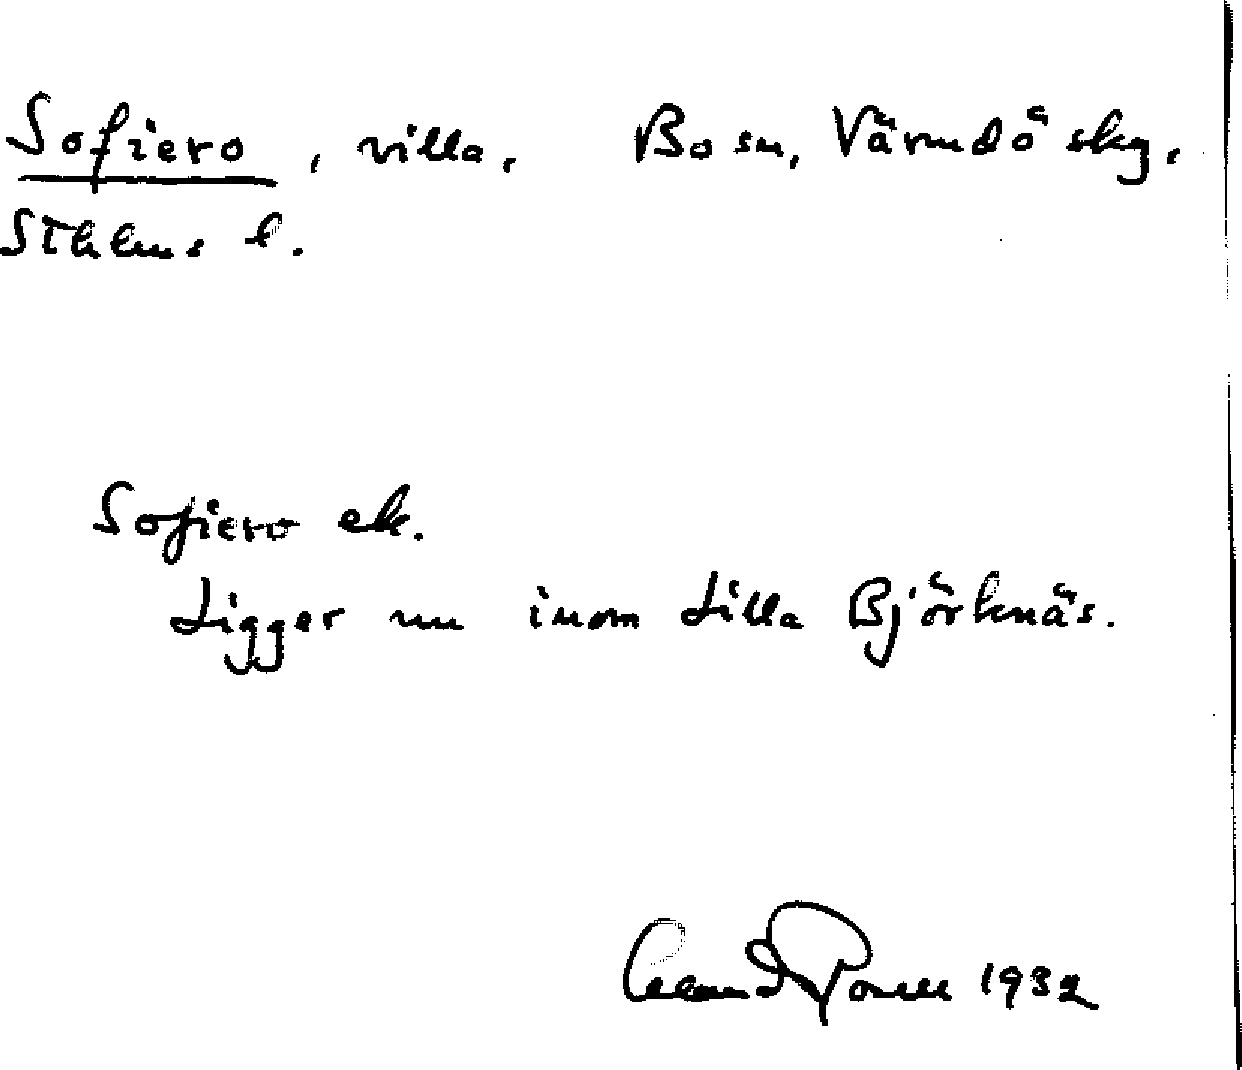 Sofiero, villa. Boo sn, Värmdö sky.
Sthlms l.
Sofiero ek.
Ligger nu inom Lilla Björknäs.
1932